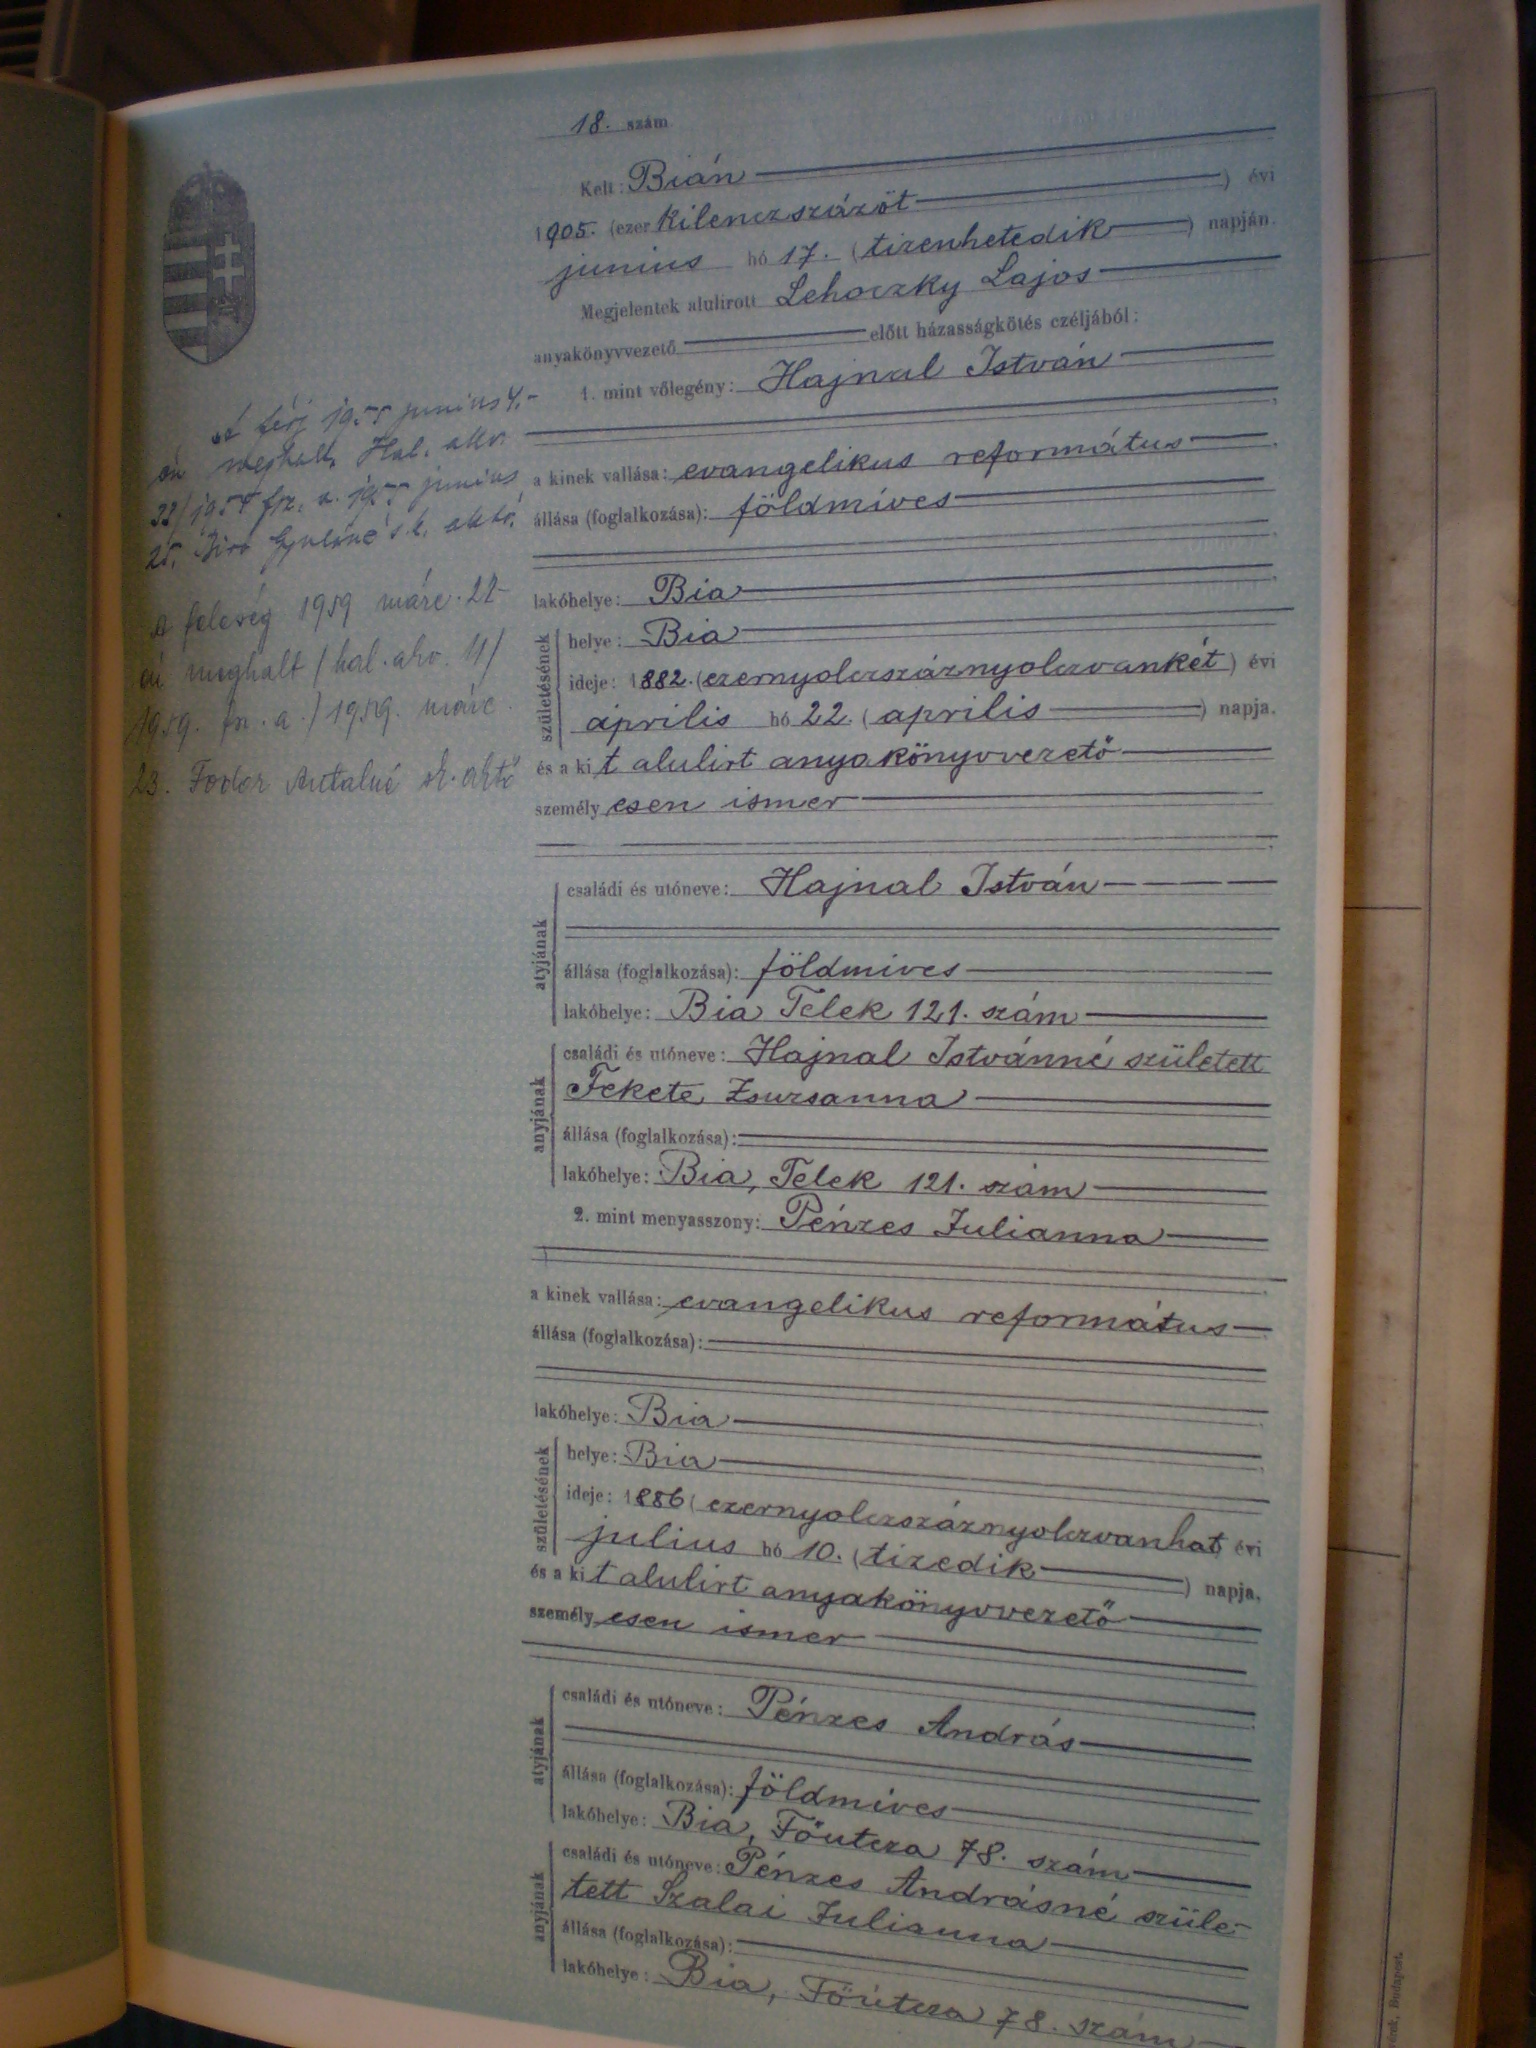 18. szám
Kelt: Bián
1905. (ezer kilenczszázöt) évi
junius hó 17. (tizenhetedik) napján.
Megjelentek alulirott Lehoczky Lajos
anyakönyvvezető előtt házasságkötés czéljából:
1. mint vőlegény: Hajnal István
a kinek vallása: evangelikus református
állása (foglalkozása): földmíves
lakóhelye: Bia
születésének
helye: Bia
ideje: 1882. (ezernyolczszáznyolczvankét) évi
április hó 22. (április) napja,
és a kit alulirt anyakönyvvezető
személyesen ismer
atyjának
családi és utóneve: Hajnal István
állása (foglalkozása): földmíves
lakóhelye: Bia Telek 121. szám
anyjának
családi és utóneve: Hajnal Istvánné született
Fekete Zsuzsanna
állása (foglalkozása):
lakóhelye: Bia, Telek 121. szám
2. mint menyasszony: Pénzes Julianna
a kinek vallása: evangelikus református
állása (foglalkozása):
lakóhelye: Bia
születésének
helye: Bia
ideje: 1886 (ezernyolczszáznyolczvanhat évi
julius hó 10. (tizedik) napja,
és a kit alulirt anyakönyvvezető
személyesen ismer
atyjának
családi és utóneve: Pénzes András
állása (foglalkozása): földmíves
lakóhelye: Bia, Főutcza 78. szám
anyjának
családi és utóneve: Pénzes Andrásné szüle-
tett Szalai Julianna
állása (foglalkozása):
lakóhelye: Bia, Főutcza 78. szám
A férj 1955 junius 4.-
én meghalt. Hal. akv.
junius
25.
A feleség 1959 márc. 22-
én meghalt / hal. akv. 11/
1959. fn. a./ 1959. márc.
23. Fodor Antalné sk. akvő
Budapest.